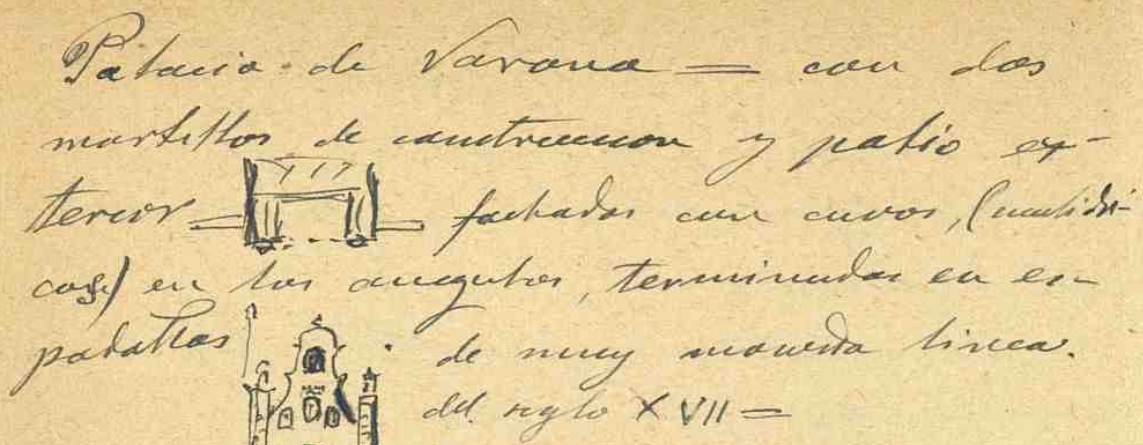 Palacio de Varona = con dos
martillos de construccion y patio ex-
terior fachadas con cuvos, (cuasi
cos) en los angulos, terminadas en es-
padallas de muy movida linea.
del siglo XVII =